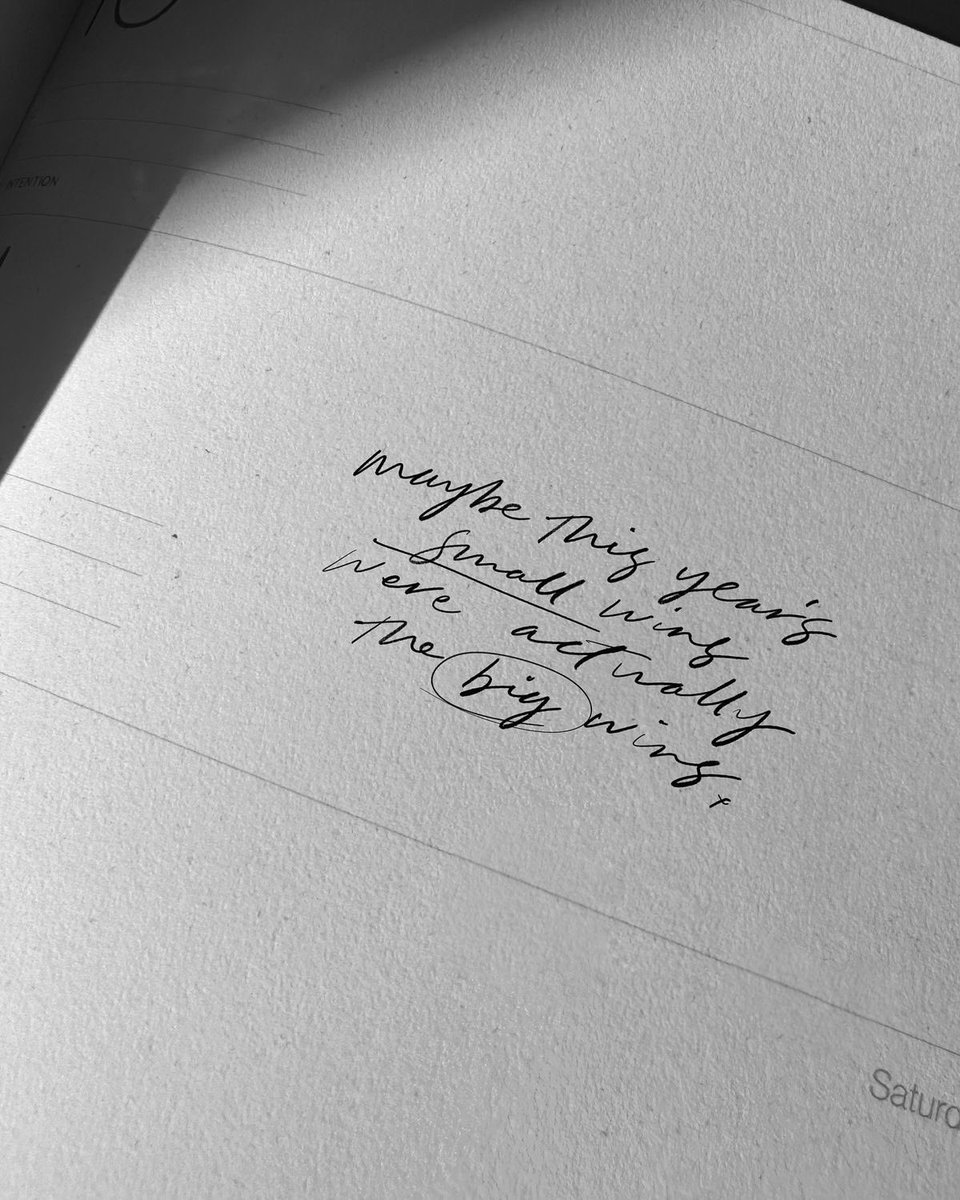 INTENTION
maybe this year's
small wins
were actually
the big wins.
x